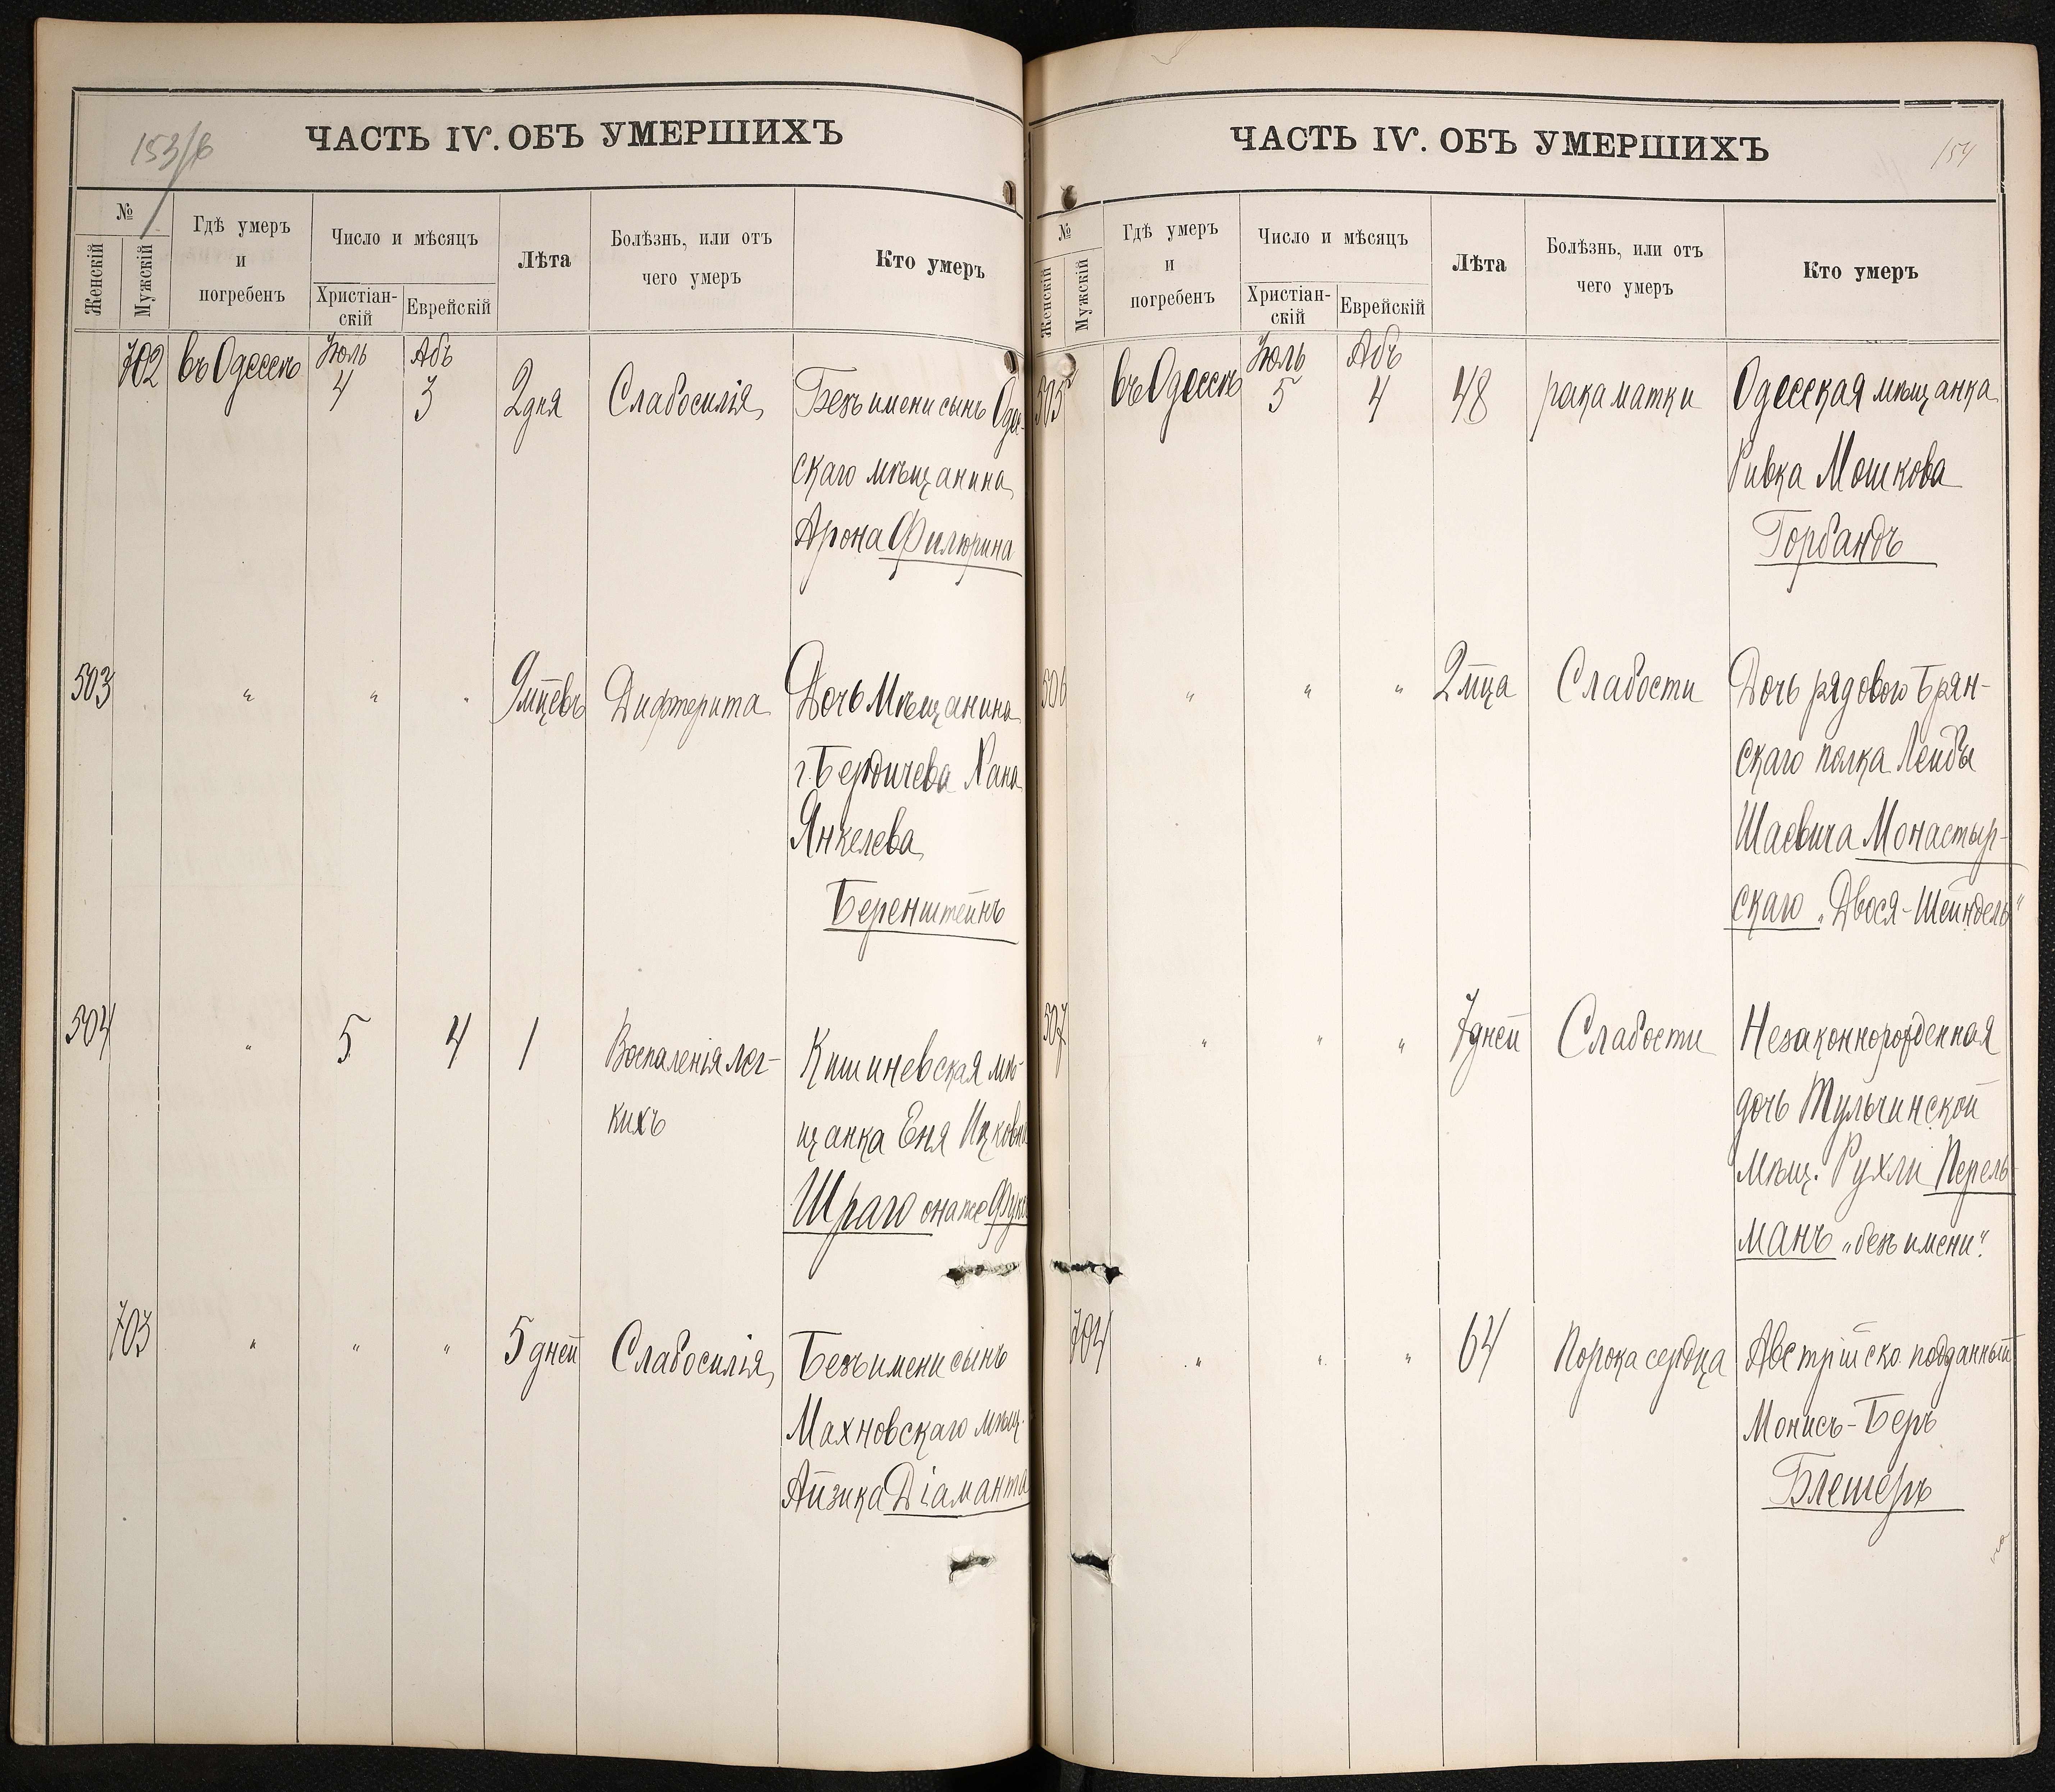 153/б
ЧАСТЬ IV. ОБЪ УМЕРШИХЪ
№
Женскій
Мужскій
Гдѣ умеръ
и
погребенъ
Число и мѣсяцъ
Христіан-
скій
Еврейскій
Лѣта
Болѣзнь, или отъ
чего умеръ
Кто умеръ
702 въ Одессѣ Іюль 4 Абъ 3 2 дня Слабосилія Безъ имени сынъ Одес-
скаго мѣщанина
Арона Филюрина
503 " " " 9 мцевъ Дифтерита Дочь Мѣщанина
г. Бердичева Хана
Янкелева
Беренштейнъ
504 " 5 4 1 Воспаленія лег- Кишиневская мѣ-
кихъ щанка Еня Ицковна
Шраго она же
703 " " " 5 дней Слабосилія Безъ имени сынъ
Махновскаго мѣщ.
Айзика Діаманта
154
ЧАСТЬ IV. ОБЪ УМЕРШИХЪ
№
Женскій
Мужскій
Гдѣ умеръ
и
погребенъ
Число и мѣсяцъ
Христіан-
скій
Еврейскій
Лѣта
Болѣзнь, или отъ
чего умеръ
Кто умеръ
505 въ Одессѣ Іюль 5 Абъ 4 48 рака матки Одесская мѣщанка
Ривка Мошкова
Горбандъ
506 " " " 2 мца Слабости Дочь рядового Брян-
скаго полка Лейбы
Шаевича Монастыр-
скаго „Двося-Шейндель"
507 " " " 7 дней Слабости Незаконнорожденная
дочь Тульчинской
Мѣщ. Рухли Перель-
манъ „безъ имени".
704 " " " 64 Порока сердца Австрійско. подданный
Монисъ-Беръ
Блешеръ